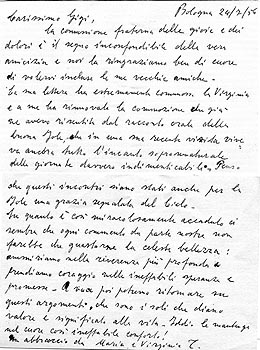 Bologna 24/2/56
Carissimo Gigi,
la comunione fraterna delle gioie e dei
dolori è il segno inconfondibile della vera
amicizia e noi la ringraziamo ben di cuore
di volervi incluse le sue vecchie amiche.
La sua lettera ha estremamente commosso la Virginia
e a me ha rinnovato la commozione che già
ne avevo risentita dal racconto orale della
buona Iole, che in una sua recente visita vive
va ancora tutto l'incanto soprannaturale
delle giornate davvero indimenticabili. Penso
che questi incontri siano stati anche per la
Iole una grazia segnalata del Cielo.
In quanto è così miracolosamente accaduto ci
sembra che ogni commento da parte nostra non
farebbe che guastarne la celeste bellezza:
ammiriamo nella riverenza più profonda e
prendiamo coraggio nelle ineffabili speranze e
promesse. A voce poi potremo ritornare su
questi argomenti, che sono i soli che diano
valore e significato alla vita. Iddio la mantenga
nel cuore così ineffabile conforto!
Un abbraccio da Maria e Virginia T.